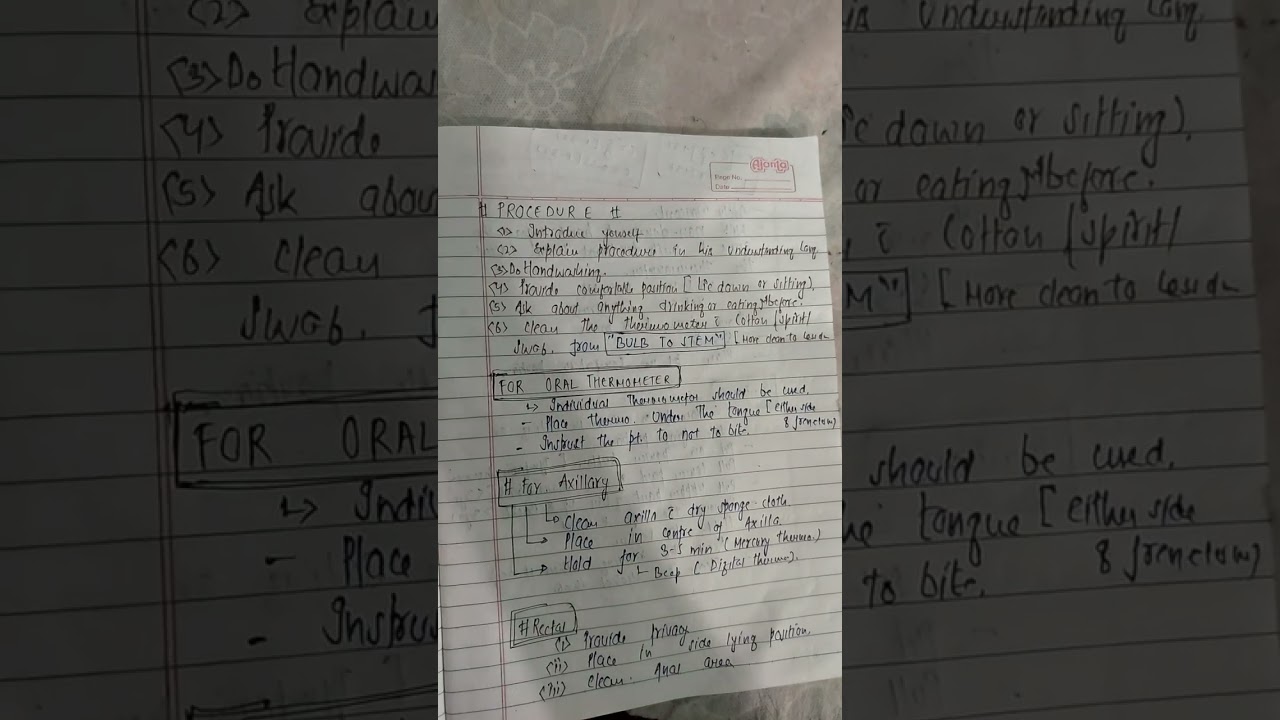 Ajanta
Page No.
Date
# PROCEDURE #
<1> Introduce yourself
<2> Explain procedure in his understanding lang.
<3> Do Handwashing.
<4> Provide comfortable position [lie down or sitting).
<5> Ask about anything drinking or eating before.
<6> Clean the thermometer c̄ Cotton / Spirit /
Swab. from "BULB TO STEM" [More clean to
FOR ORAL THERMOMETER
↳ Individual Thermometer should be used.
- Place thermo. Under The tongue [either side
8 frenelum)
- Instruct the pt. to not to bite.
# For. Axillary
→ Clean axilla c̄ dry sponge cloth.
→ Place in centre of Axilla.
→ Hold for 3-5 min (Mercury thermo.)
↳ Beep (Digital thermo).
# Rectal
<i> Provide privacy
<ii> Place in side lying position.
<iii> Clean. Anal area